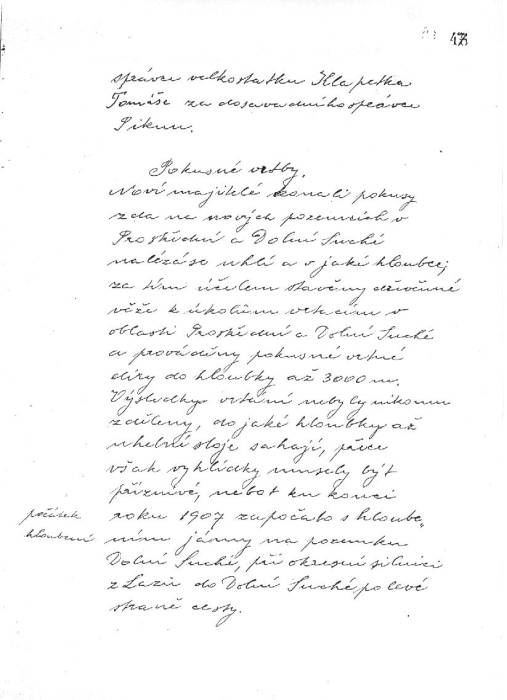 48
správce velkostatku Klapetka
Tomáše za dosavadního správce
Pikun.
Pokusné vrtby.
Noví majitelé konali pokusy
zda na nových pozemcích v
Prostřední a Dolní Suché
nalézá se uhlí a v jaké hloubce,
za tím účelem stavěny dřevěné
věže k úkolům vrtacím v
oblasti Prostřední a Dolní Suché
a prováděny pokusné vrtné
díry do hloubky až 3000 m.
Výsledky vrtání nebyly nikomu
zdíleny, do jaké hloubky až
uhelné sloje sahají, přece
však vyhlídky musely být
příznivé, neboť ku konci
roku 1907 započato s hloube„
ním jámy na pozemku
Dolní Suché, při okresní silnici
z Lazů do Dolní Suché po levé
straně cesty.
počátek
hloubení